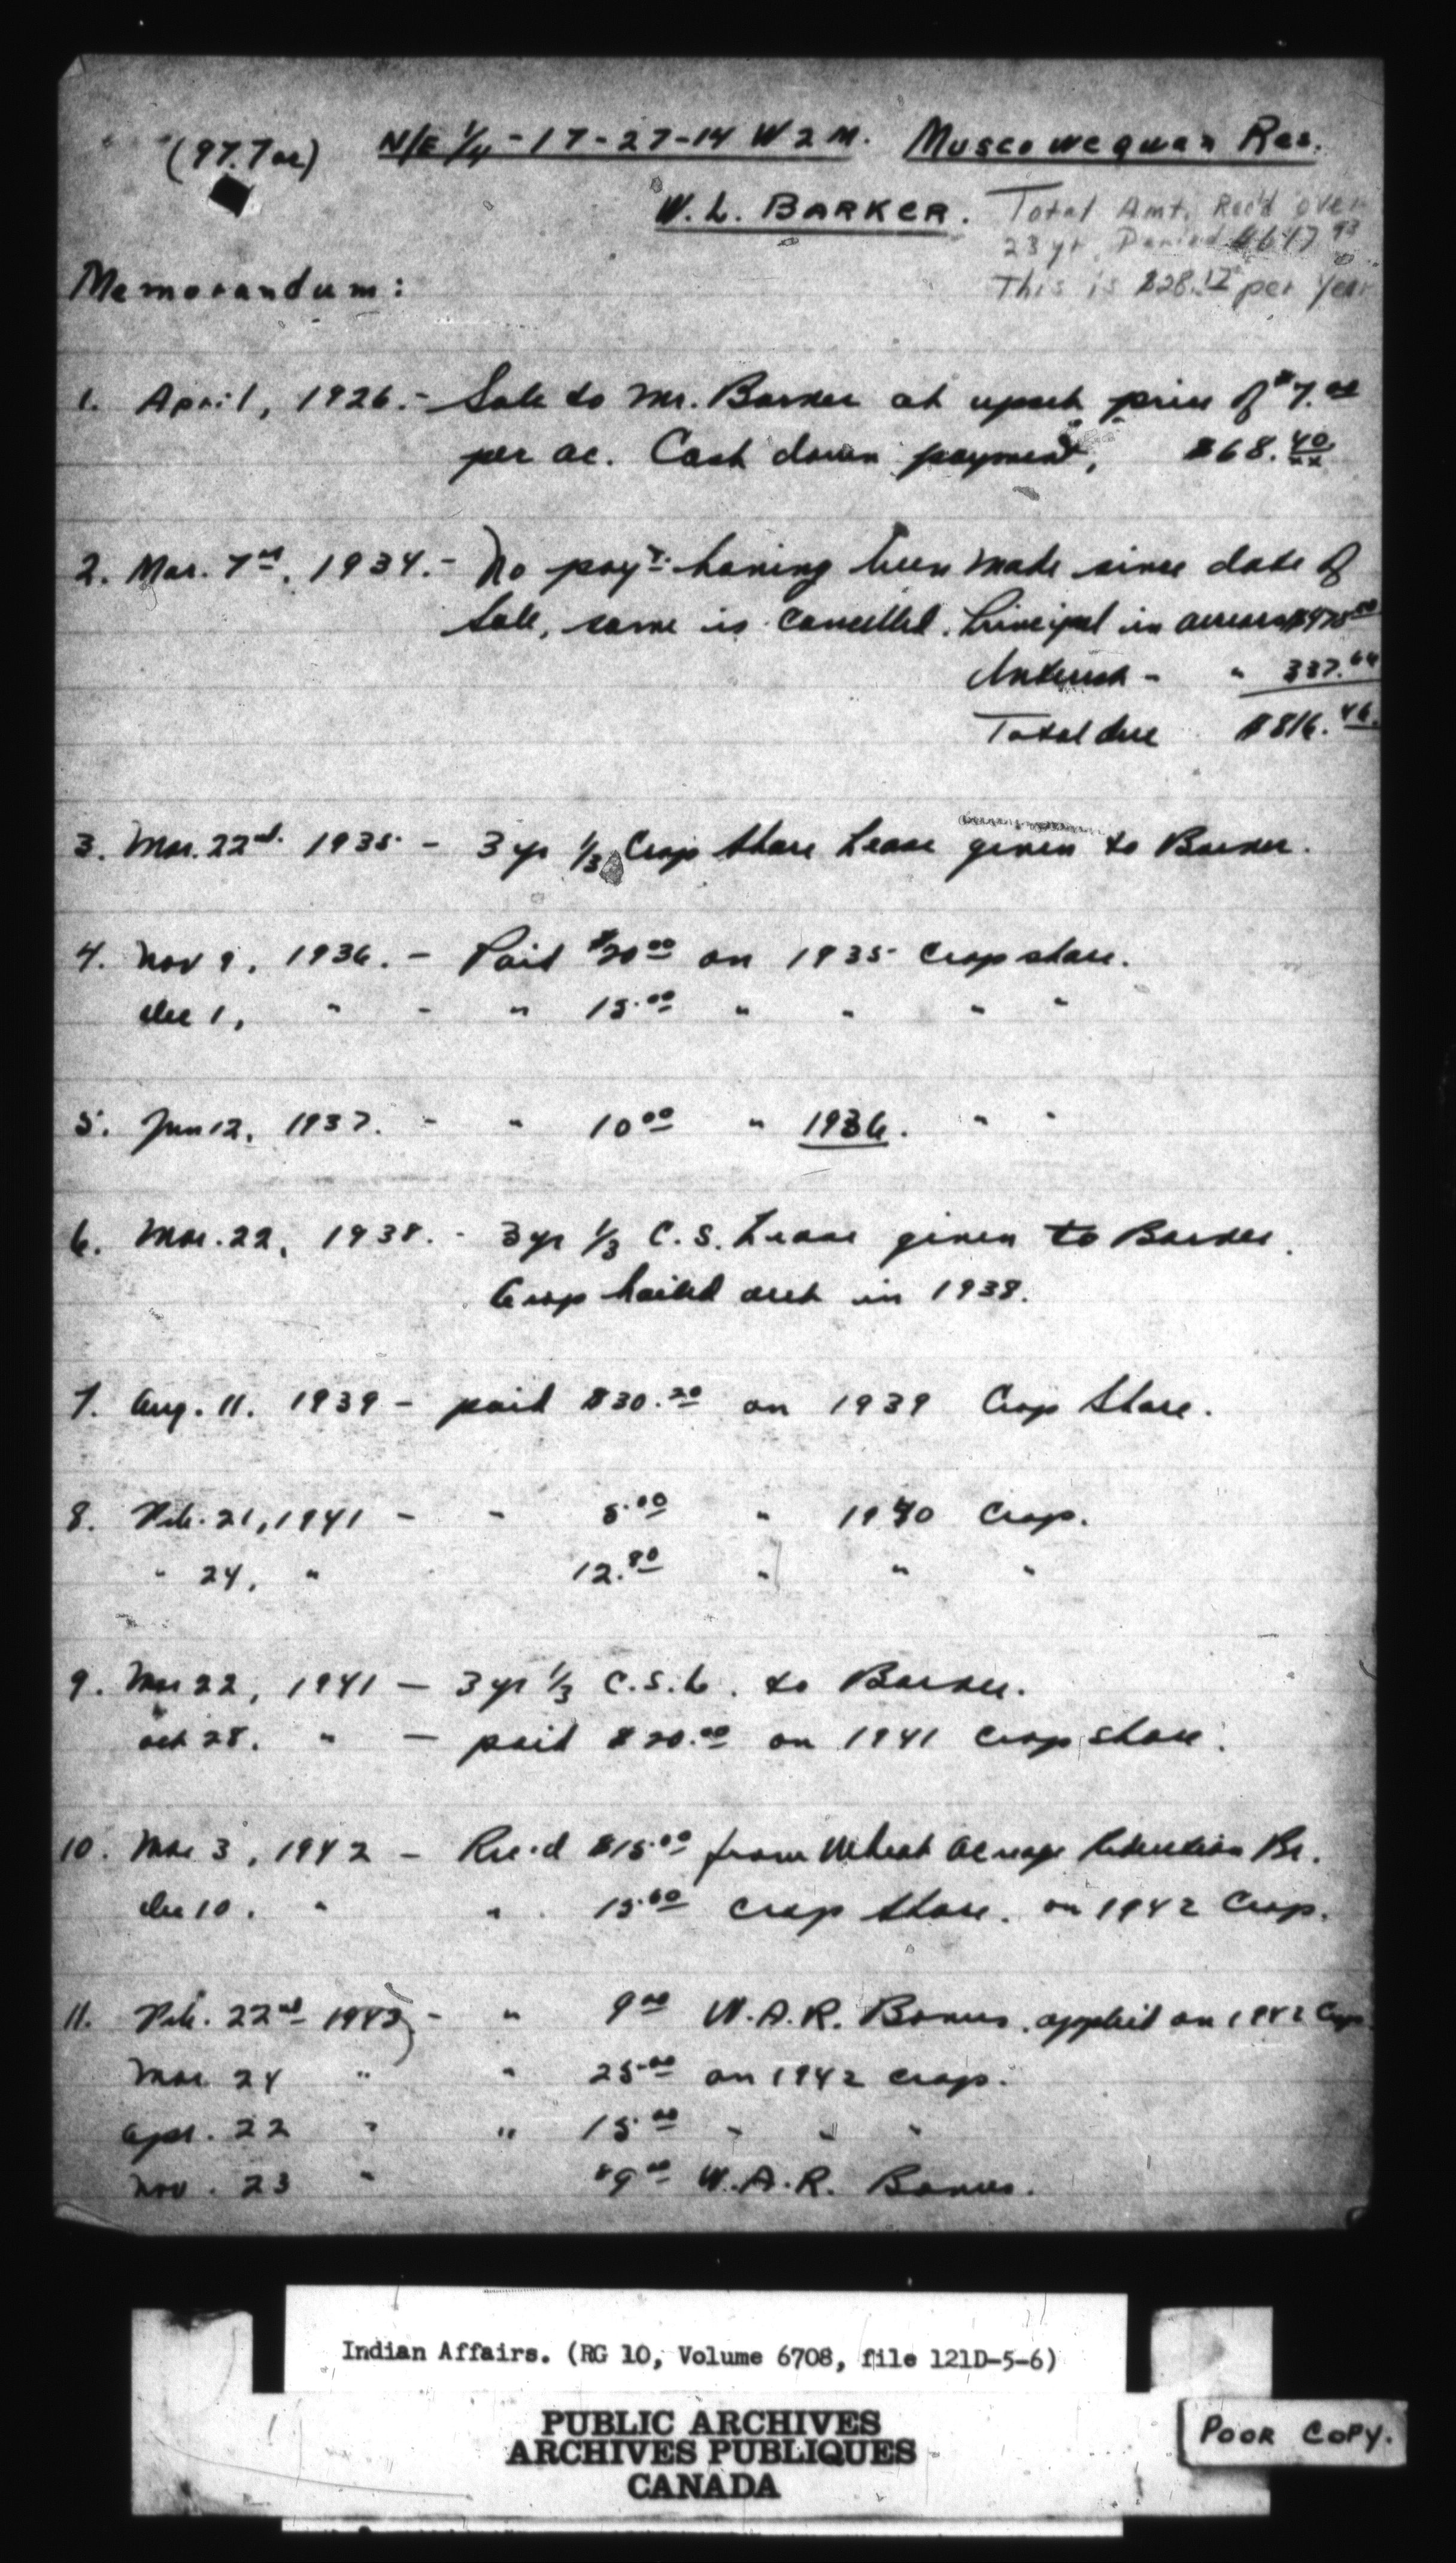 (97.7 ac) N/E 1/4 - 17 - 27 - 14 W 2 M. Muscowequan Res.
W. L. BARKER. Total Amt. Rec'd over
23 yr. Period $647.93
This is $28.17 per year
Memorandum:
1. April, 1926. - Sale to Mr. Barker at upset price of $7.00
per ac. Cash down payment, $68.40
2. Mar. 7th, 1934. - No payt. having been made since date of
Sale, same is cancelled. Principal in arrears
Interest - "
Total due $816.46
3. Mar. 22nd. 1935 - 3 yr 1/3 Crop Share Lease given to Barker.
4. Nov 9, 1936. - Paid $20.00 on 1935 Crop share.
Dec 1, " - " 15.00 " " " "
5. Jan 12, 1937. - " 10.00 " 1936. " "
6. Mar. 22, 1938. - 3 yr 1/3 C. S. Lease given to Barker.
Crop hailed out in 1938.
7. Aug. 11. 1939 - paid $30.20 on 1939 Crop Share.
8. Feb. 21, 1941 - " 5.00 " 1940 Crop.
" 24, " 12.80 " " "
9. Mar 22, 1941 - 3 yr 1/3 C.S.L. to Barker.
Oct 28. " - paid $20.00 on 1941 Crop share.
10. Mar 3, 1942 - Rec'd $15.00 from Wheat Acreage Reduction Br.
Dec 10. " " 15.00 crop share. on 1942 Crop.
11. Feb. 22nd 1943 - " 9.00 W.A.R. Bonus. applied on 1942 Crop.
Mar. 24 " " 25.00 on 1942 crop.
Apr. 22 " " 15.00 " " "
Nov. 23 " "9.00 W.A.R. Bonus.
Indian Affairs. (RG 10, Volume 6708, file 121D-5-6)
PUBLIC ARCHIVES
ARCHIVES PUBLIQUES
CANADA
POOR COPY.